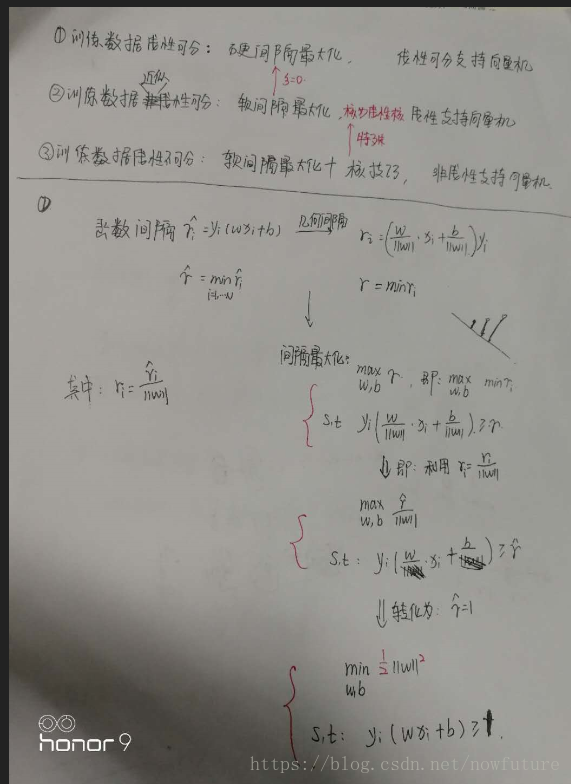 ①训练数据线性可分：硬间隔最大化， 线性可分支持向量机
↑ξ=0
近似
②训练数据线性可分：软间隔最大化，核为线性核 线性支持向量机
↑特殊
③训练数据线性不可分：软间隔最大化+核技巧，非线性支持向量机.
①
函数间隔 r̂i=yi(wxi+b) 几何间隔→ ri=(w/||w||·xi+b/||w||)yi
r̂=min r̂i i=1,…N r=min ri
↓
间隔最大化:
max w,b r，即: max w,b min ri
其中: ri=r̂i/||w||
s,t yi(w/||w||·xi+b/||w||)≥r
⇓即:利用 ri=ri/||w||
max w,b r̂/||w||
s,t: yi(w·xi+b)≥r̂
⇓转化为: r̂=1
min w,b 1/2||w||²
s,t: yi(wxi+b)≥1.
honor 9
https://blog.csdn.net/nowfuture